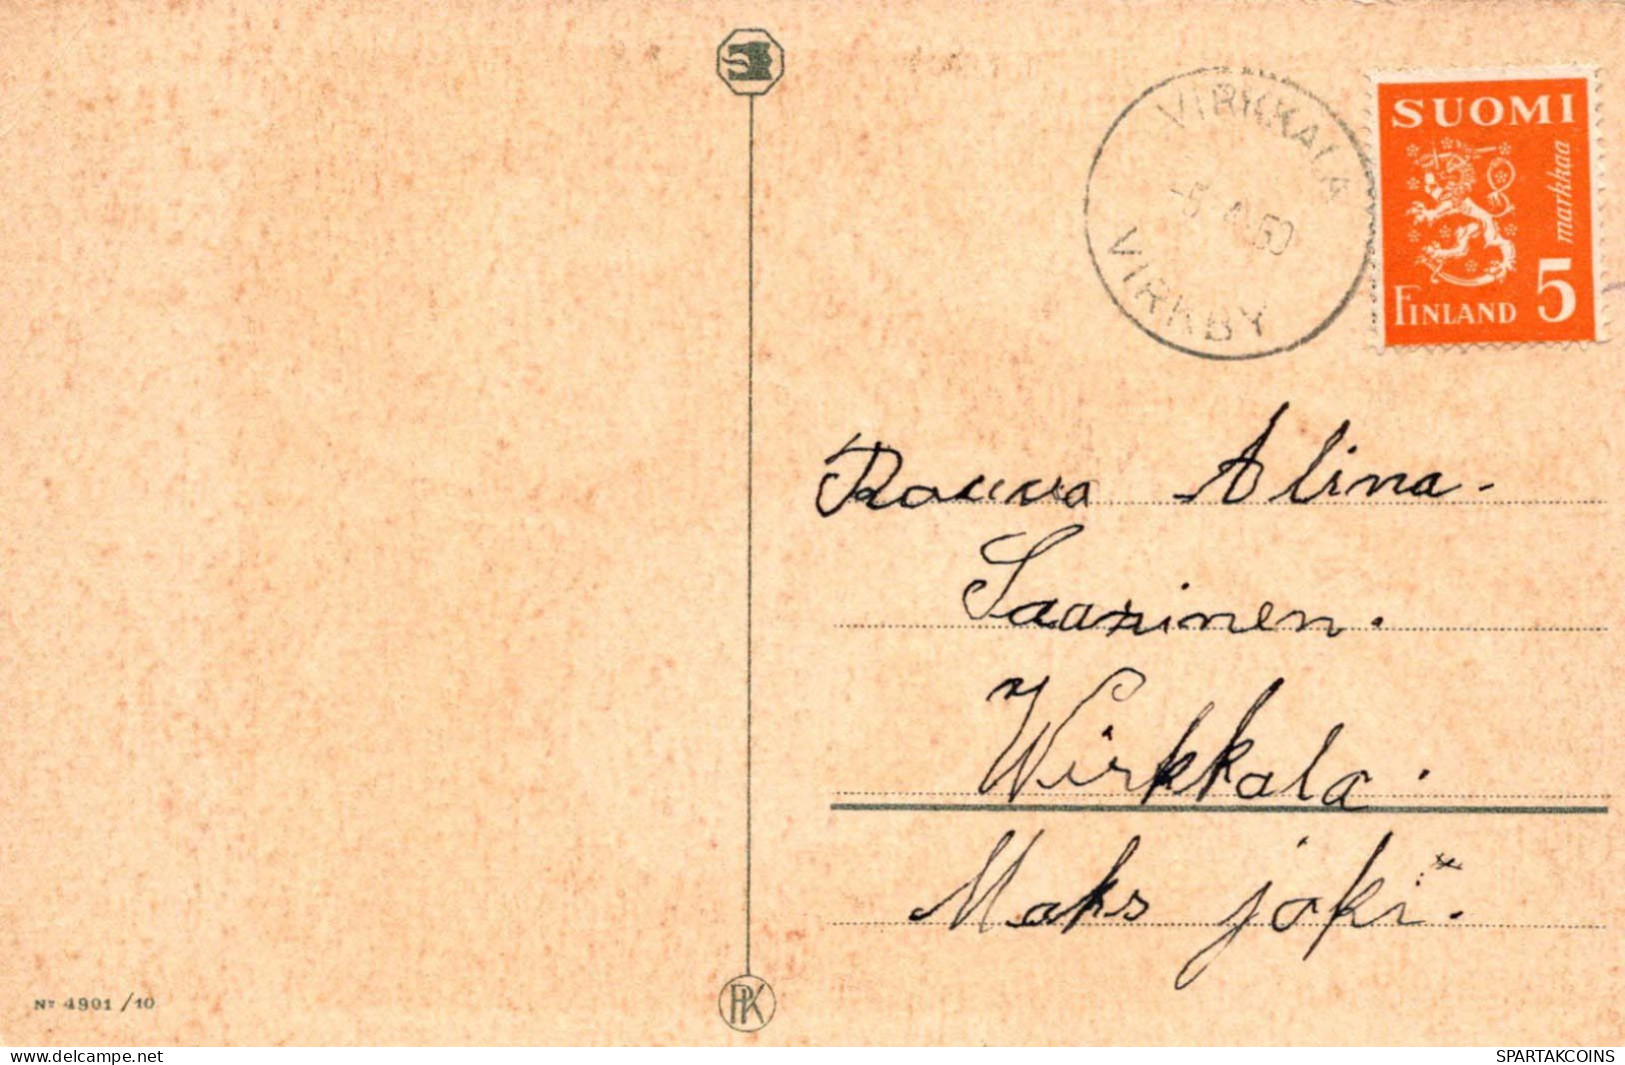 VIRKKALA
-5.4.50
VIRKBY
SUOMI
markkaa
FINLAND 5
Rouva Alina.
Saarinen.
Wirkkala.
Maks joki.
Nr 4901/10
PK
delcampe.net
SPARTAKCOINS